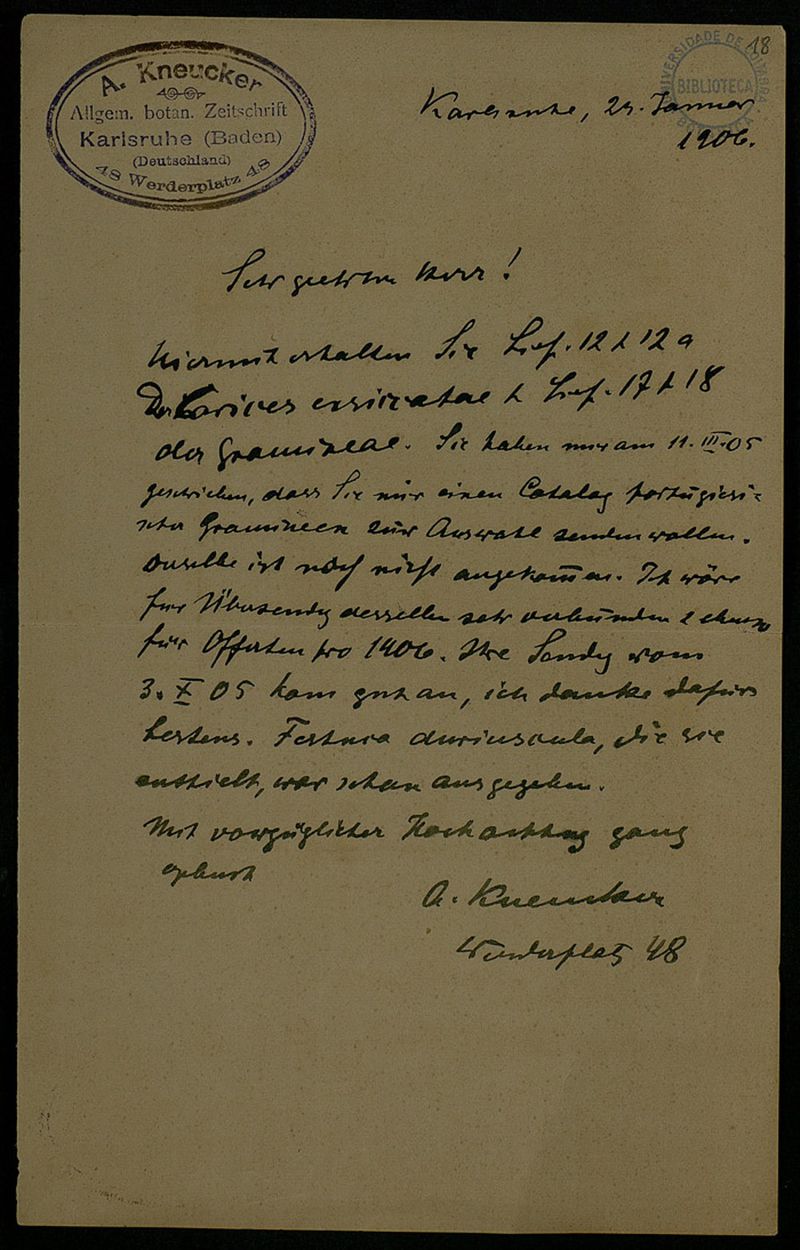 18
UNIVERSIDADE DE COIMBRA
BIBLIOTECA
A. Kneucker
Allgem. botan. Zeitschrift
Karlsruhe (Baden)
(Deutschland)
48 Werderplatz 48
Karlsruhe, 29. Januar
1906.
Sehr geehrter Herr!
Hiermit erhalten Sie Lief. 12 & 12a
der Carices exsiccatae & Lief. 17 & 18
der Gramineae. Sie haben mir am 11. III. 05
geschrieben, dass Sie mir einen Catalog portugiesi-
scher Gramineen zur Auswahl senden wollen.
Derselbe ist noch nicht angekommen. Ich wäre
für Übersendg desselben sehr verbunden & ebenso
für Offerten pro 1906. Ihre Sendg vom
3. X 05 kam gut an, ich danke dafür
bestens. Festuca duriuscula, die sie
enthielt, war schon ausgegeben.
Mit vorzüglicher Hochachtung ganz
ergebenst
A. Kneucker
Werderplatz 48